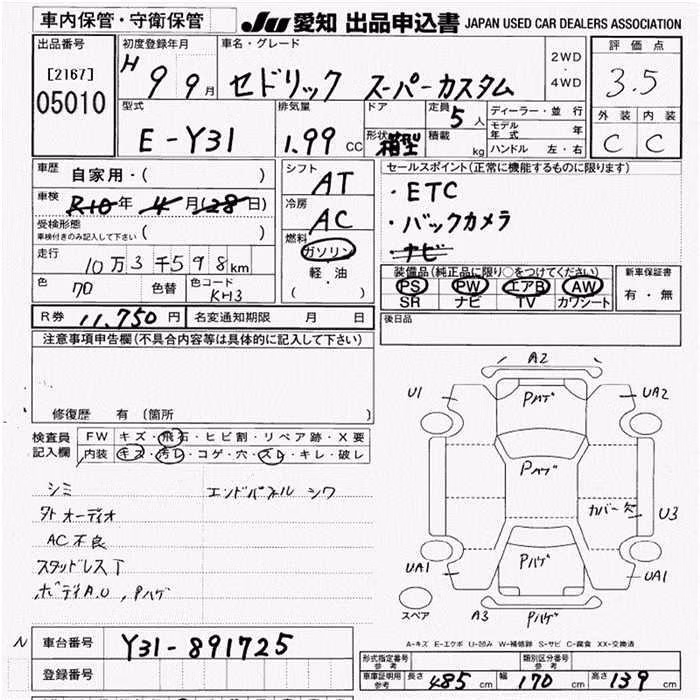 車内保管・守衛保管 JU 愛知 出品申込書 JAPAN USED CAR DEALERS ASSOCIATION
出品番号 初度登録年月 車名・グレード 2WD・4WD 評価点
[2167] H 9 9月 セドリック スーパーカスタム 3.5
05010
型式 排気量 ドア 定員 5人 ディーラー・並行 外装 内装
E-Y31 1.99 CC 形状 箱型 積載 kg モデル年式 年 C C
ハンドル 左・右
車歴 自家用・( ) シフト AT セールスポイント(正常に機能するものに限ります)
車検 R10年 4月(28日) 冷房 AC ・ETC
受検形態 車検付きのみ記入して下さい ( ) ・バックカメラ
走行 10万3千598km 燃料 ガソリン ・ナビ
軽・油
( )
色 70 色替 色コード KH3
装備品(純正品に限り○をつけてください) 新車保証書
PS PW エアB AW 有・無
SR ナビ TV カワシート
R券 11,750円 名変通知期限 月 日 後日品
注意事項申告欄(不具合内容等は具体的に記入して下さい)
修復歴 有(箇所 )
検査員記入欄 FW キズ・飛石・ヒビ割・リペア跡・X要
内装 キズ・汚レ・コゲ・穴・スレ・キレ・破レ
シミ エンドパネル シワ
外オーディオ
AC不良
スタッドレスT
ボディA.U , Pハゲ
A2
U1 Pハゲ UA2
Pハゲ
カバー欠 U3
UA1 Pハゲ UA1
スペア A3 Pハゲ
A-キズ E-エクボ U-凹み W-補修跡 S-サビ C-腐食 XX-交換済
N 車台番号 Y31-891725
登録番号
形式指定番号 参考 類別区分番号 参考
車庫証明用 参考 長さ 485cm 幅 170cm 高さ 139cm